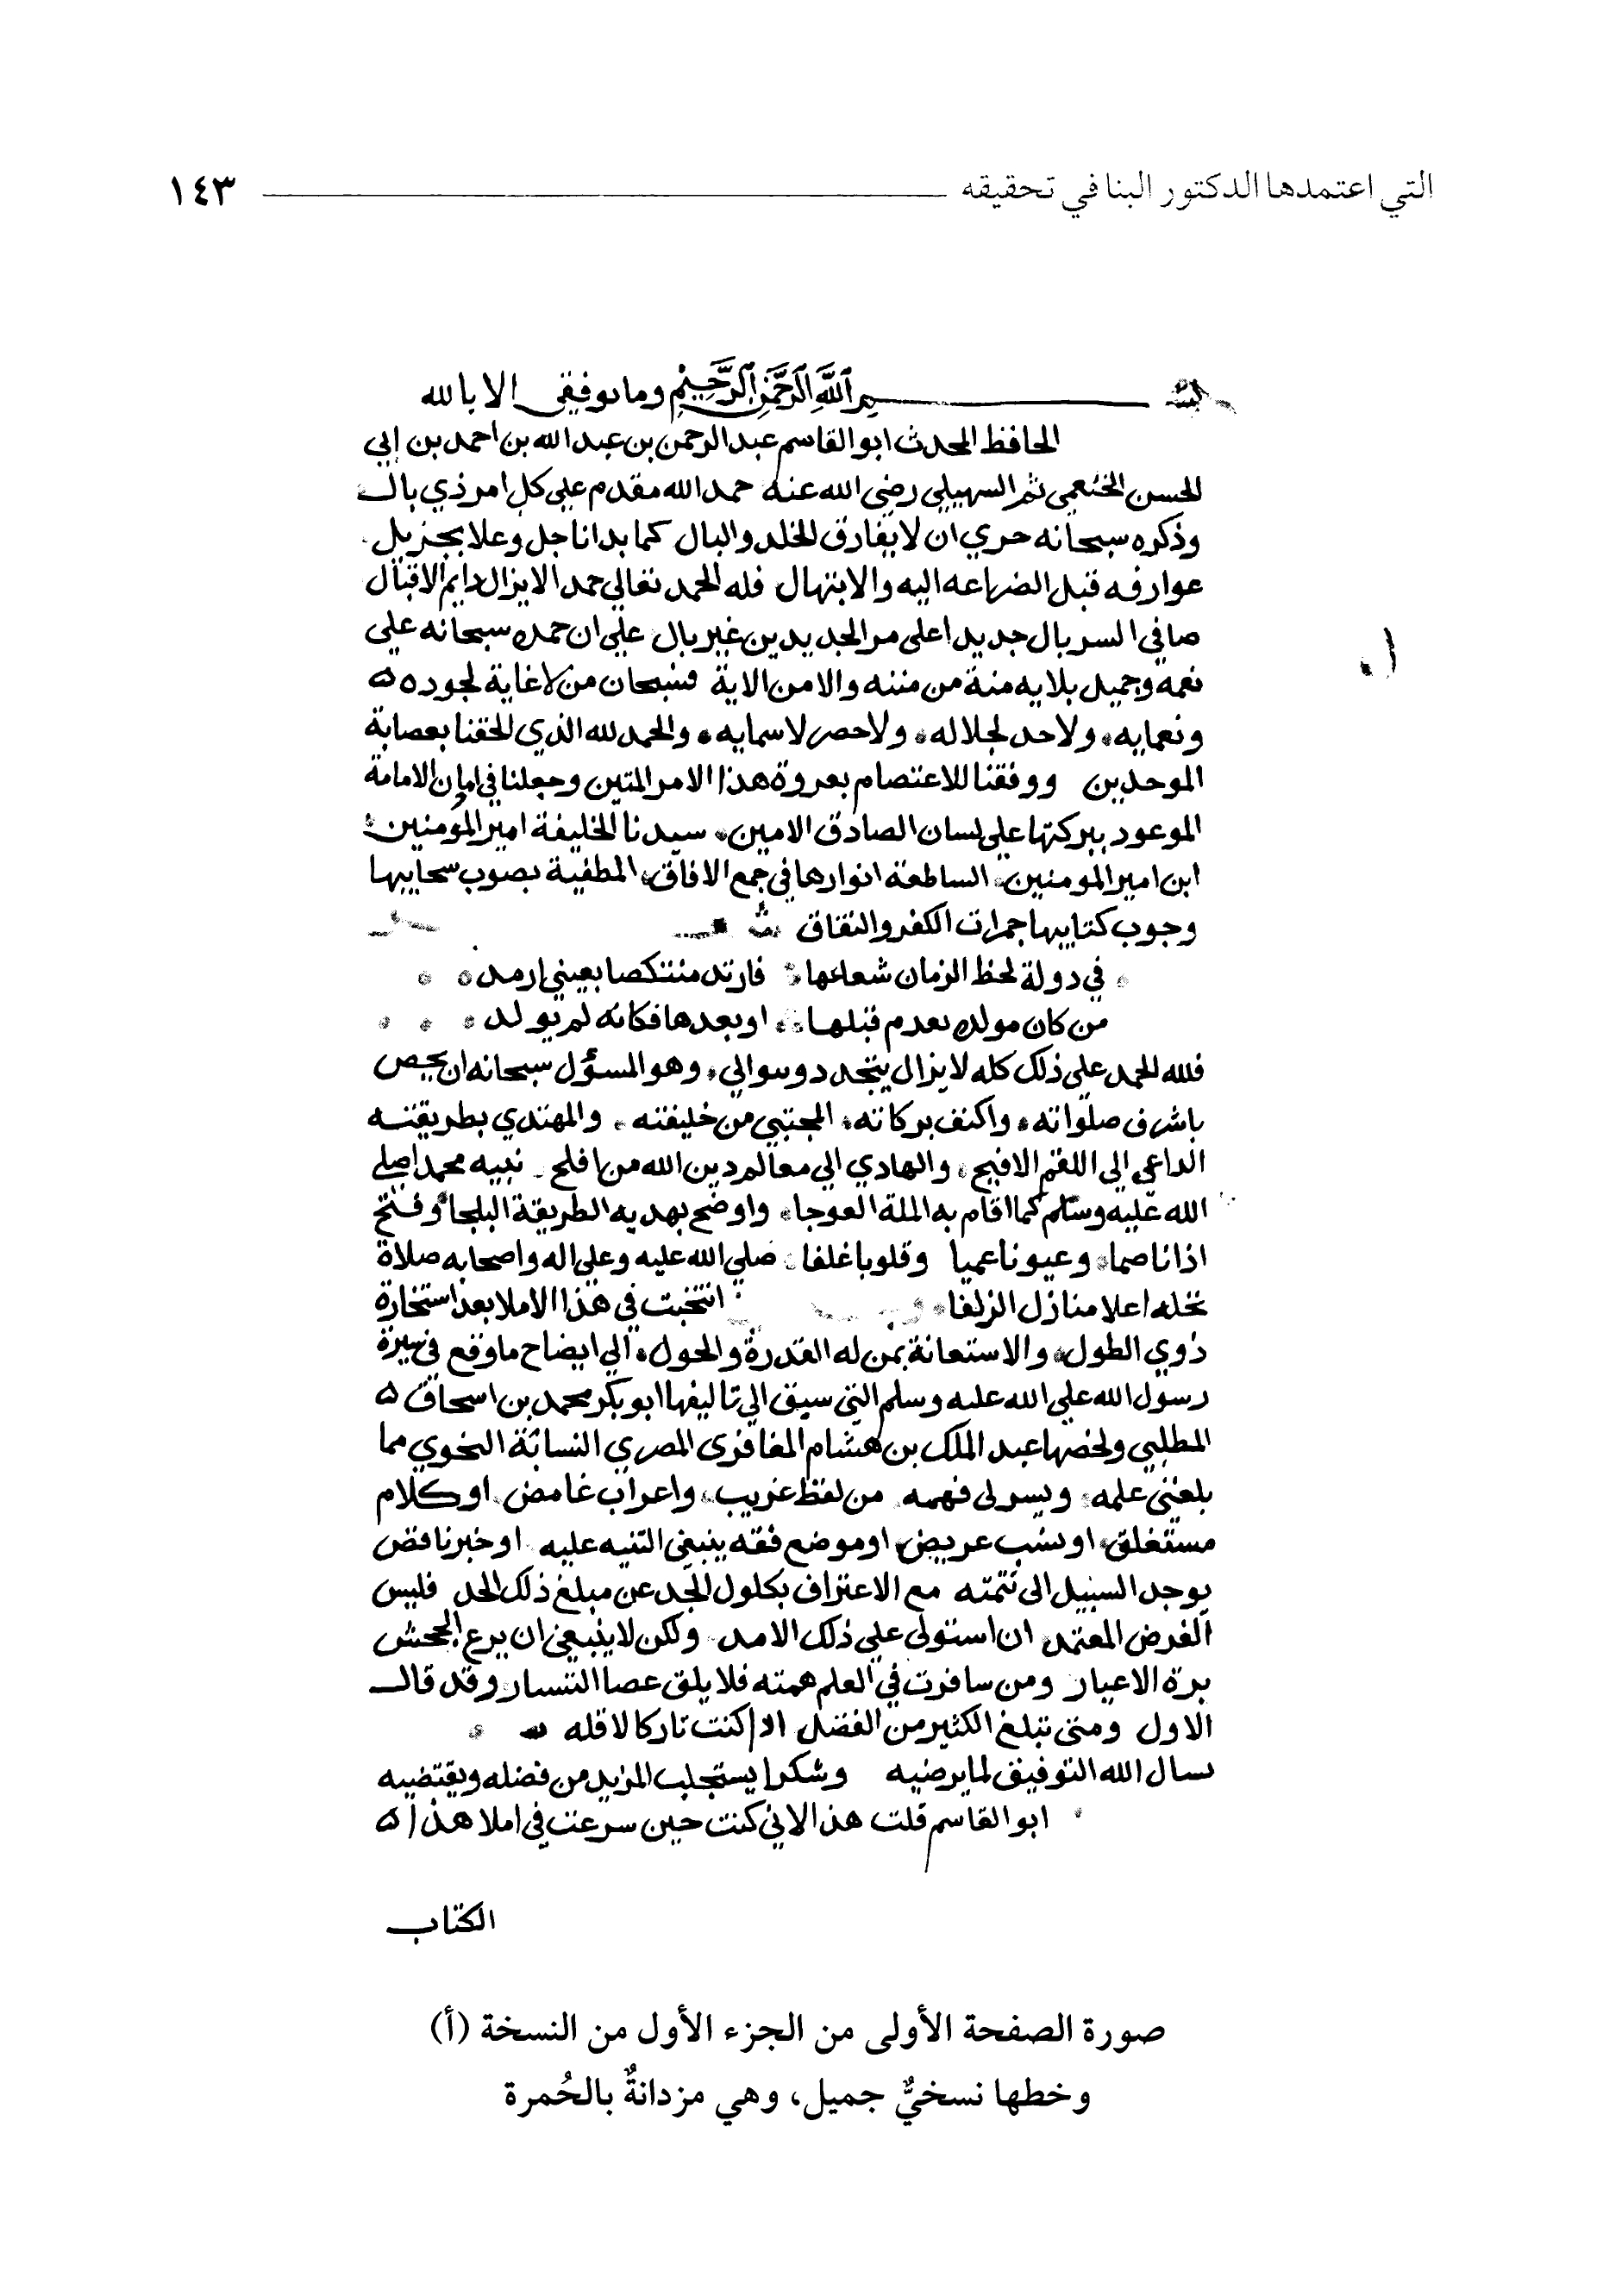 التي اعتمدها الدكتور البنا في تحقيقه ١٤٣
بسم الله الرحمن الرحيم وما توفيقي الا بالله
الحافظ المحدث ابو القاسم عبد الرحمن بن عبد الله بن احمد بن ابي
الحسن الخثعمي ثم السهيلي رضي الله عنه حمد الله مقدم على كل امر ذي بال
وذكره سبحانه حري ان لا يفارق الخلد والبال كما بدانا جل وعلا بجزيل
عوارفه قبل الضراعه اليه والابتهال فله الحمد تعالي حمدا لا يزال دايم الاقبال
صافي السربال جديدا على مر الجديدين غير بال علي ان حمده سبحانه علي
نعمه وجميل بلايه منة من مننه والا من الاية فسبحان من لا غاية لجوده
ونعمايه ولا حد لجلاله ولا حصر لاسمايه والحمد لله الذي الحقنا بعصابة
الموحدين ووفقنا للاعتصام بعروة هذا الامر المتين وجعلنا في ابان الامامة
الموعود ببركتها علي لسان الصادق الامين سيدنا الخليفة امير المومنين
ابن امير المومنين الساطعة انوارها في جمع الافاق المطفية بصوب سحايبها
وجوب كتايبها جمرات الكفر والنفاق
في دولة لحظ الزمان شعاعها فارتد منتكصا بعيني ارمد
من كان مولده بعدم قبلها او بعدها فكانه لم يولد
فلله الحمد علي ذلك كله لا يزال يتجدد ويتوالي وهو المسؤل سبحانه ان يخص
باشرف صلواته واكنف بركاته المجتبي من خليقته والمهتدي بطريقته
الداعي الي اللقم الافيح والهادي الي معالم دين الله من افلح نبيه محمدا صلي
الله عليه وسلم كما اقام به الملة العوجا واوضح بهديه الطريقة البلجا وفتح
اذانا صما وعيونا عميا وقلوبا غلفا صلي الله عليه وعلى اله واصحابه صلاة
تحله اعلا منازل الزلفا انتخبت في هذا الاملا بعد استخارة
ذوي الطول والاستعانة بمن له القدرة والحول الي ايضاح ما وقع في سيرة
رسول الله علي الله عليه وسلم التي سبق الي تاليفها ابو بكر محمد بن اسحاق
المطلبي ولخصها عبد الملك بن هشام المغافرى المصري النسابة النحوي مما
بلغني علمه ويسر لى فهمه من لفظ غريب واعراب غامض او كلام
مستغلق او نسب عريض او موضع فقه ينبغي التنبيه عليه او خبر ناقص
يوجد السبيل الى تتمته مع الاعتراف بكلول الجد عن مبلغ ذلك الحد فليس
الغرض المعتمد ان استولى علي ذلك الامد ولكن لا ينبغي ان يرع الجحش
برة الاعيار ومن سافرت في العلم همته فلا يلق عصا التسيار وقد قال
الاول ومتى تبلغ الكثير من الفضل اذا كنت تاركا لاقله
نسال الله التوفيق لما يرضيه وشكرا يستجلب المزيد من فضله ويقتضيه
ابو القاسم قلت هذا لاني كنت حين سرعت في املا هذا
الكتاب
صورة الصفحة الأولى من الجزء الأول من النسخة (أ)
وخطها نسخيٌّ جميل، وهي مزدانةٌ بالحُمرة